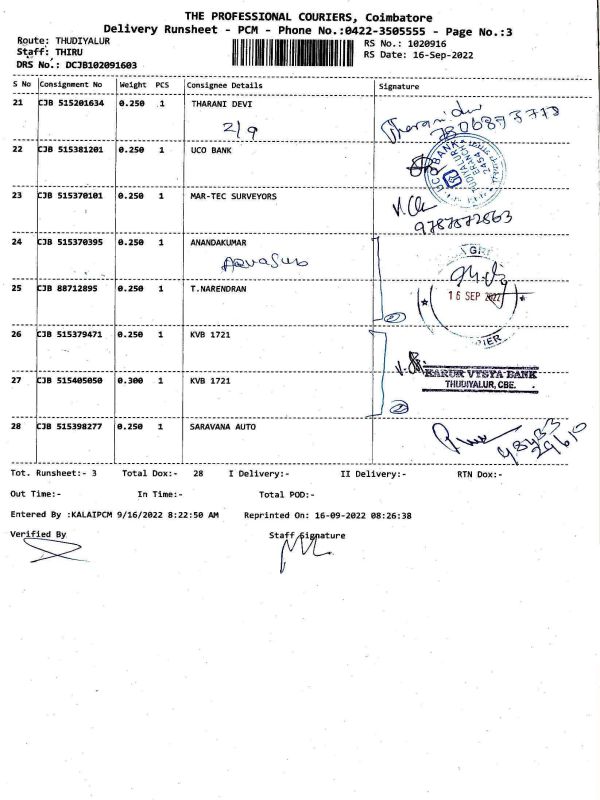 THE PROFESSIONAL COURIERS, Coimbatore
Delivery Runsheet - PCM - Phone No.:0422-3505555 - Page No.:3
Route: THUDIYALUR
Staff: THIRU
DRS No.: DCJB102091603
RS No.: 1020916
RS Date: 16-Sep-2022
S No Consignment No Weight PCS Consignee Details Signature
21 CJB 515201634 0.250 1 THARANI DEVI
2/9
22 CJB 515381201 0.250 1 UCO BANK
UCO BANK THUDIYALUR BRANCH 2454
23 CJB 515370101 0.250 1 MAR-TEC SURVEYORS
24 CJB 515370395 0.250 1 ANANDAKUMAR
AquaSub
25 CJB 88712895 0.250 1 T.NARENDRAN
16 SEP 2022
2
26 CJB 515379471 0.250 1 KVB 1721
KARUR VYSYA BANK
THUDIYALUR, CBE.
27 CJB 515405050 0.300 1 KVB 1721
2
28 CJB 515398277 0.250 1 SARAVANA AUTO
Tot. Runsheet:- 3 Total Dox:- 28 I Delivery:- II Delivery:- RTN Dox:-
Out Time:- In Time:- Total POD:-
Entered By :KALAIPCM 9/16/2022 8:22:50 AM Reprinted On: 16-09-2022 08:26:38
Verified By Staff Signature